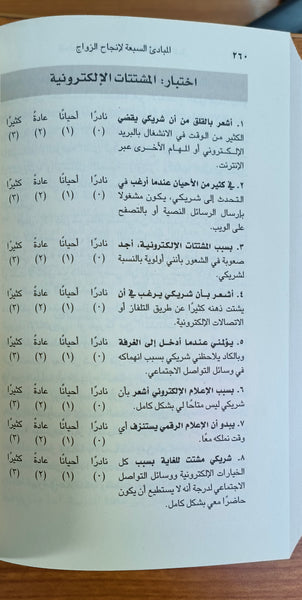 ٢٦٠ المبادئ السبعة لإنجاح الزواج
اختبار: المشتتات الإلكترونية
١. أشعر بالقلق من أن شريكي يقضي نادرًا أحيانًا عادةً كثيرًا
الكثير من الوقت في الانشغال بالبريد (٠) (١) (٢) (٣)
الإلكتروني أو المهام الأخرى عبر
الإنترنت.
٢. في كثير من الأحيان عندما أرغب في نادرًا أحيانًا عادةً كثيرًا
التحدث إلى شريكي، يكون مشغولا (٠) (١) (٢) (٣)
بإرسال الرسائل النصية أو بالتصفح
على الويب.
٣. بسبب المشتتات الإلكترونية، أجد نادرًا أحيانًا عادةً كثيرًا
صعوبة في الشعور بأنني أولوية بالنسبة (٠) (١) (٢) (٣)
لشريكي.
٤. أشعر بأن شريكي يرغب في أن نادرًا أحيانًا عادةً كثيرًا
يشتت ذهنه كثيرًا عن طريق التلفاز أو (٠) (١) (٢) (٣)
الاتصالات الإلكترونية.
٥. يؤلني عندما أدخل إلى الغرفة نادرًا أحيانًا عادةً كثيرًا
وبالكاد يلاحظني شريكي بسبب انهماكه (٠) (١) (٢) (٣)
في وسائل التواصل الاجتماعي.
٦. بسبب الإعلام الإلكتروني أشعر بأن نادرًا أحيانًا عادةً كثيرًا
شريكي ليس متاحًا لي بشكل كامل. (٠) (١) (٢) (٣)
٧. يبدو أن الإعلام الرقمي يستنزف أي نادرًا أحيانًا عادةً كثيرًا
وقت نملكه معًا. (٠) (١) (٢) (٣)
٨. شريكي مشتت للغاية بسبب كل نادرًا أحيانًا عادةً كثيرًا
الخيارات الإلكترونية ووسائل التواصل (٠) (١) (٢) (٣)
الاجتماعي لدرجة أنه لا يستطيع أن يكون
حاضرًا معي بشكل كامل.